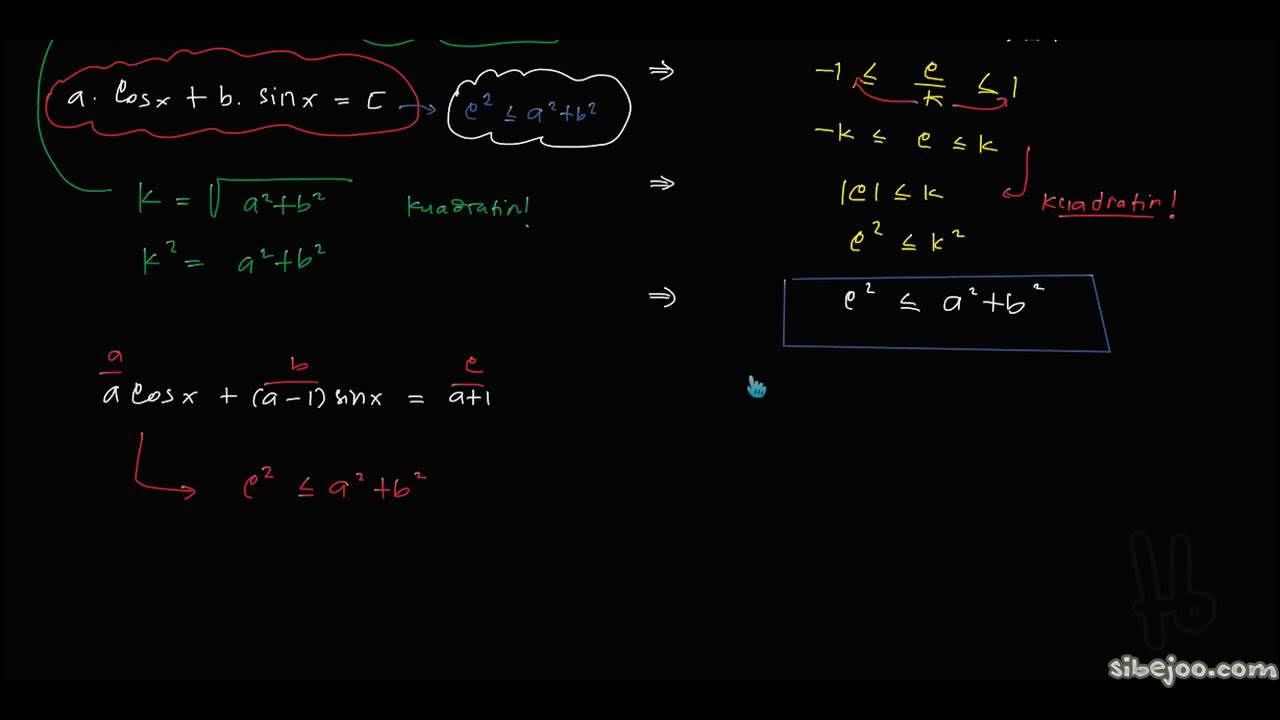 a. cosx + b. sinx = c → c² ≤ a²+b²
k = √a²+b² kuadratin!
k² = a²+b²
⇒ -1 ≤ c/k ≤ 1
-k ≤ c ≤ k
⇒ |c| ≤ k kuadratin!
c² ≤ k²
⇒ c² ≤ a²+b²
a b c
a cosx + (a-1) sinx = a+1
c² ≤ a²+b²
sibejoo.com